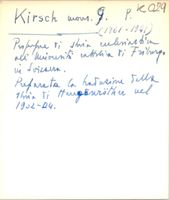 Kirsch mons. G. P. K 029
(1861-1941)
Professore di storia ecclesiastica
all' Università cattolica di Friburgo
in Svizzera.
Preparata la traduzione della
storia di Hergenröther nel
1902-04.